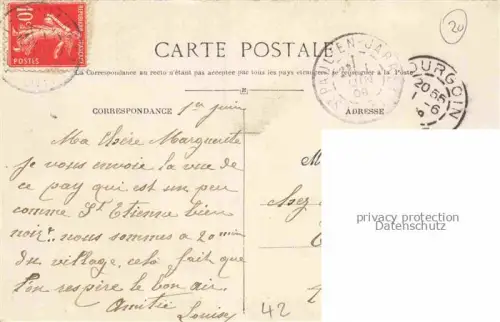 10c
POSTES
20
CARTE POSTALE
La Correspondance au recto n'étant pas acceptée par tous les pays étrangers, se renseigner à la Poste
ST PAUL-EN-JARRET
BOURGOIN
20 55
1 -6
CORRESPONDANCE
ADRESSE
1er juin
Ma Chère Marguerite
Je vous envoie la vue de
ce pay qui est un peu
comme St Etienne bien
noir.. nous sommes a 20 min
du village, cela fait que
l'on respire le bon air.
Amitié
Louise
M
Chez
privacy protection
Datenschutz
42